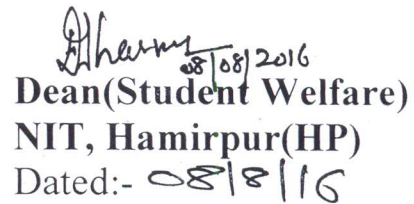 08/08/2016
Dean(Student Welfare)
NIT, Hamirpur(HP)
Dated:- 08/8/16